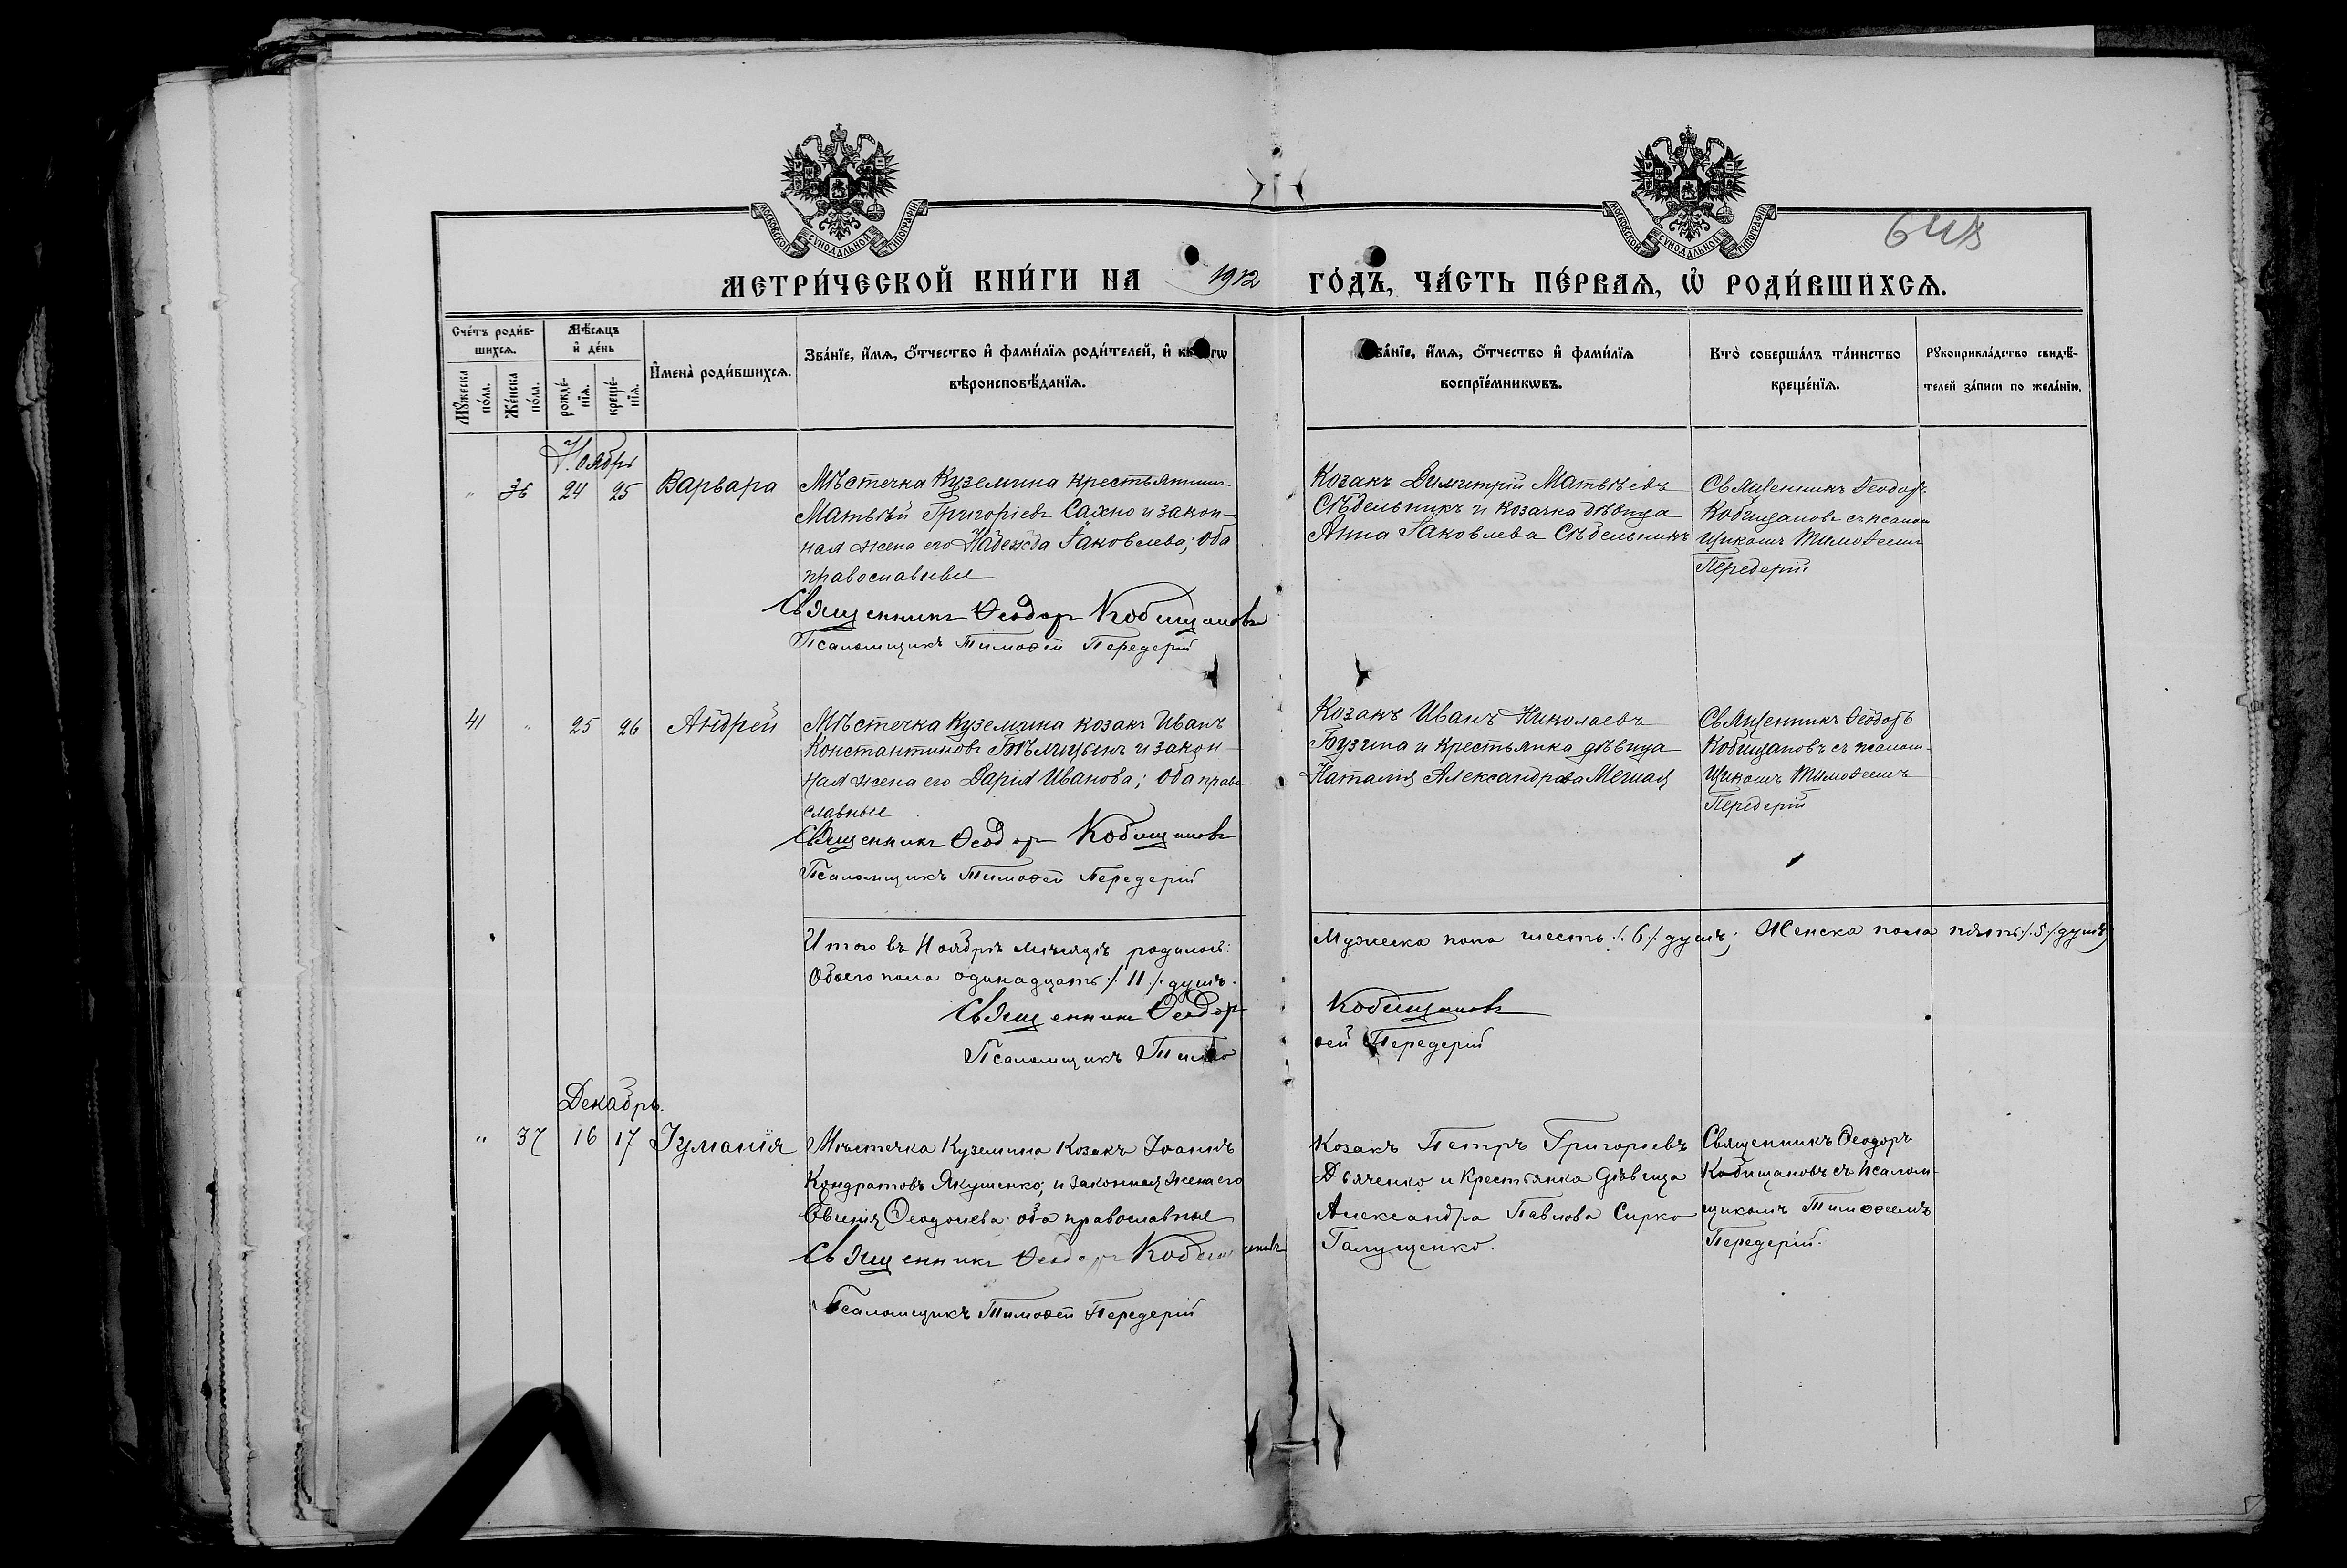 МОСКОВСКОЙ СУНОДАЛЬНОЙ ТИПОГРАФІИ
МОСКОВСКОЙ СУНОДАЛЬНОЙ ТИПОГРАФІИ
МЕТРИ́ЧЕСКОЙ КНИ́ГИ НА 1912 ГО́ДЪ, ЧА́СТЬ ПЕ́РВАЯ, Ѡ РОДИ́ВШИХСЯ.
Сче́тъ роди́в-
шихся.
Мѣ́сяцъ
и де́нь
Му́жеска по́ла.
Же́нска по́ла.
рожде́-
нїя.
креще́-
нїя.
Имена̀ роди́вшихся.
Зва́нїе, и́мя, о́тчество и фами́лїя роди́телей, и
вѣроисповѣ́данїя.
и́мя, о́тчество и фами́лїя
воспрїе́мникѡвъ.
Кто̀ соверша́лъ та́инство
креще́нїя.
Рꙋкоприкла́дство свидѣ́-
телей за́писи по жела́нїю.
Ноябрь
" 36 24 25 Варвара
Мѣстечка Куземина крестьянинъ
Матвѣй Григоріевъ Сахно и закон-
ная жена его Надежда Іаковлева; оба
православные
Священникъ Ѳеодоръ Кобищановъ
Псаломщикъ Тимоѳей Передерій
Козакъ Димитрій Матвѣевъ
Сѣдельникъ и козачка дѣвица
Анна Іаковлева Сѣдельникъ
Священникъ Ѳеодоръ
Кобищановъ съ псалом
щикомъ Тимоѳеемъ
Передерій
41 " 25 26 Андрей
Мѣстечка Куземина козакъ Иванъ
Константиновъ и закон-
ная жена его Дарія Иванова; оба право-
славные
Священникъ Ѳеодоръ Кобищановъ
Псаломщикъ Тимоѳей Передерій
Козакъ Иванъ Николаевъ
Бузина и крестьянка дѣвица
Наталія Александрова
Священникъ Ѳеодоръ
Кобищановъ съ псалом-
щикомъ Тимоѳеемъ
Передерій
Итого въ Ноябрѣ мѣсяцѣ родилось:
Мужеска пола шесть /. 6 /. душъ; Женска пола пять /. 5 /. душъ;
Обоего пола одинадцать /. 11 /. душъ.
Священникъ Ѳеодоръ Кобищановъ
Псаломщикъ Тимоѳей Передерій
Декабрь.
" 37 16 17 Іуліанія
Мѣстечка Куземина Козакъ Іоаннъ
Кондратовъ Якушенко, и законная жена его
Евгенія оба православные
Священникъ Ѳеодоръ Кобищановъ
Псаломщикъ Тимоѳей Передерій
Козакъ Петръ Григоріевъ
Дьяченко и Крестьянка дѣвица
Александра Павлова Сирко
Галущенко.
Священникъ Ѳеодоръ
Кобищановъ съ Псалом-
щикомъ Тимоѳеемъ
Передерій.